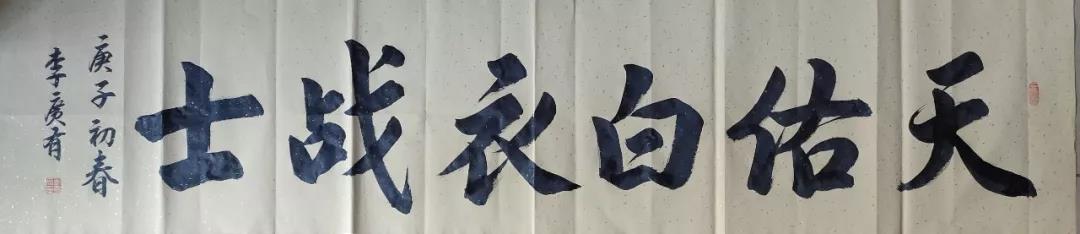 天佑白衣战士
庚子初春
李庚有